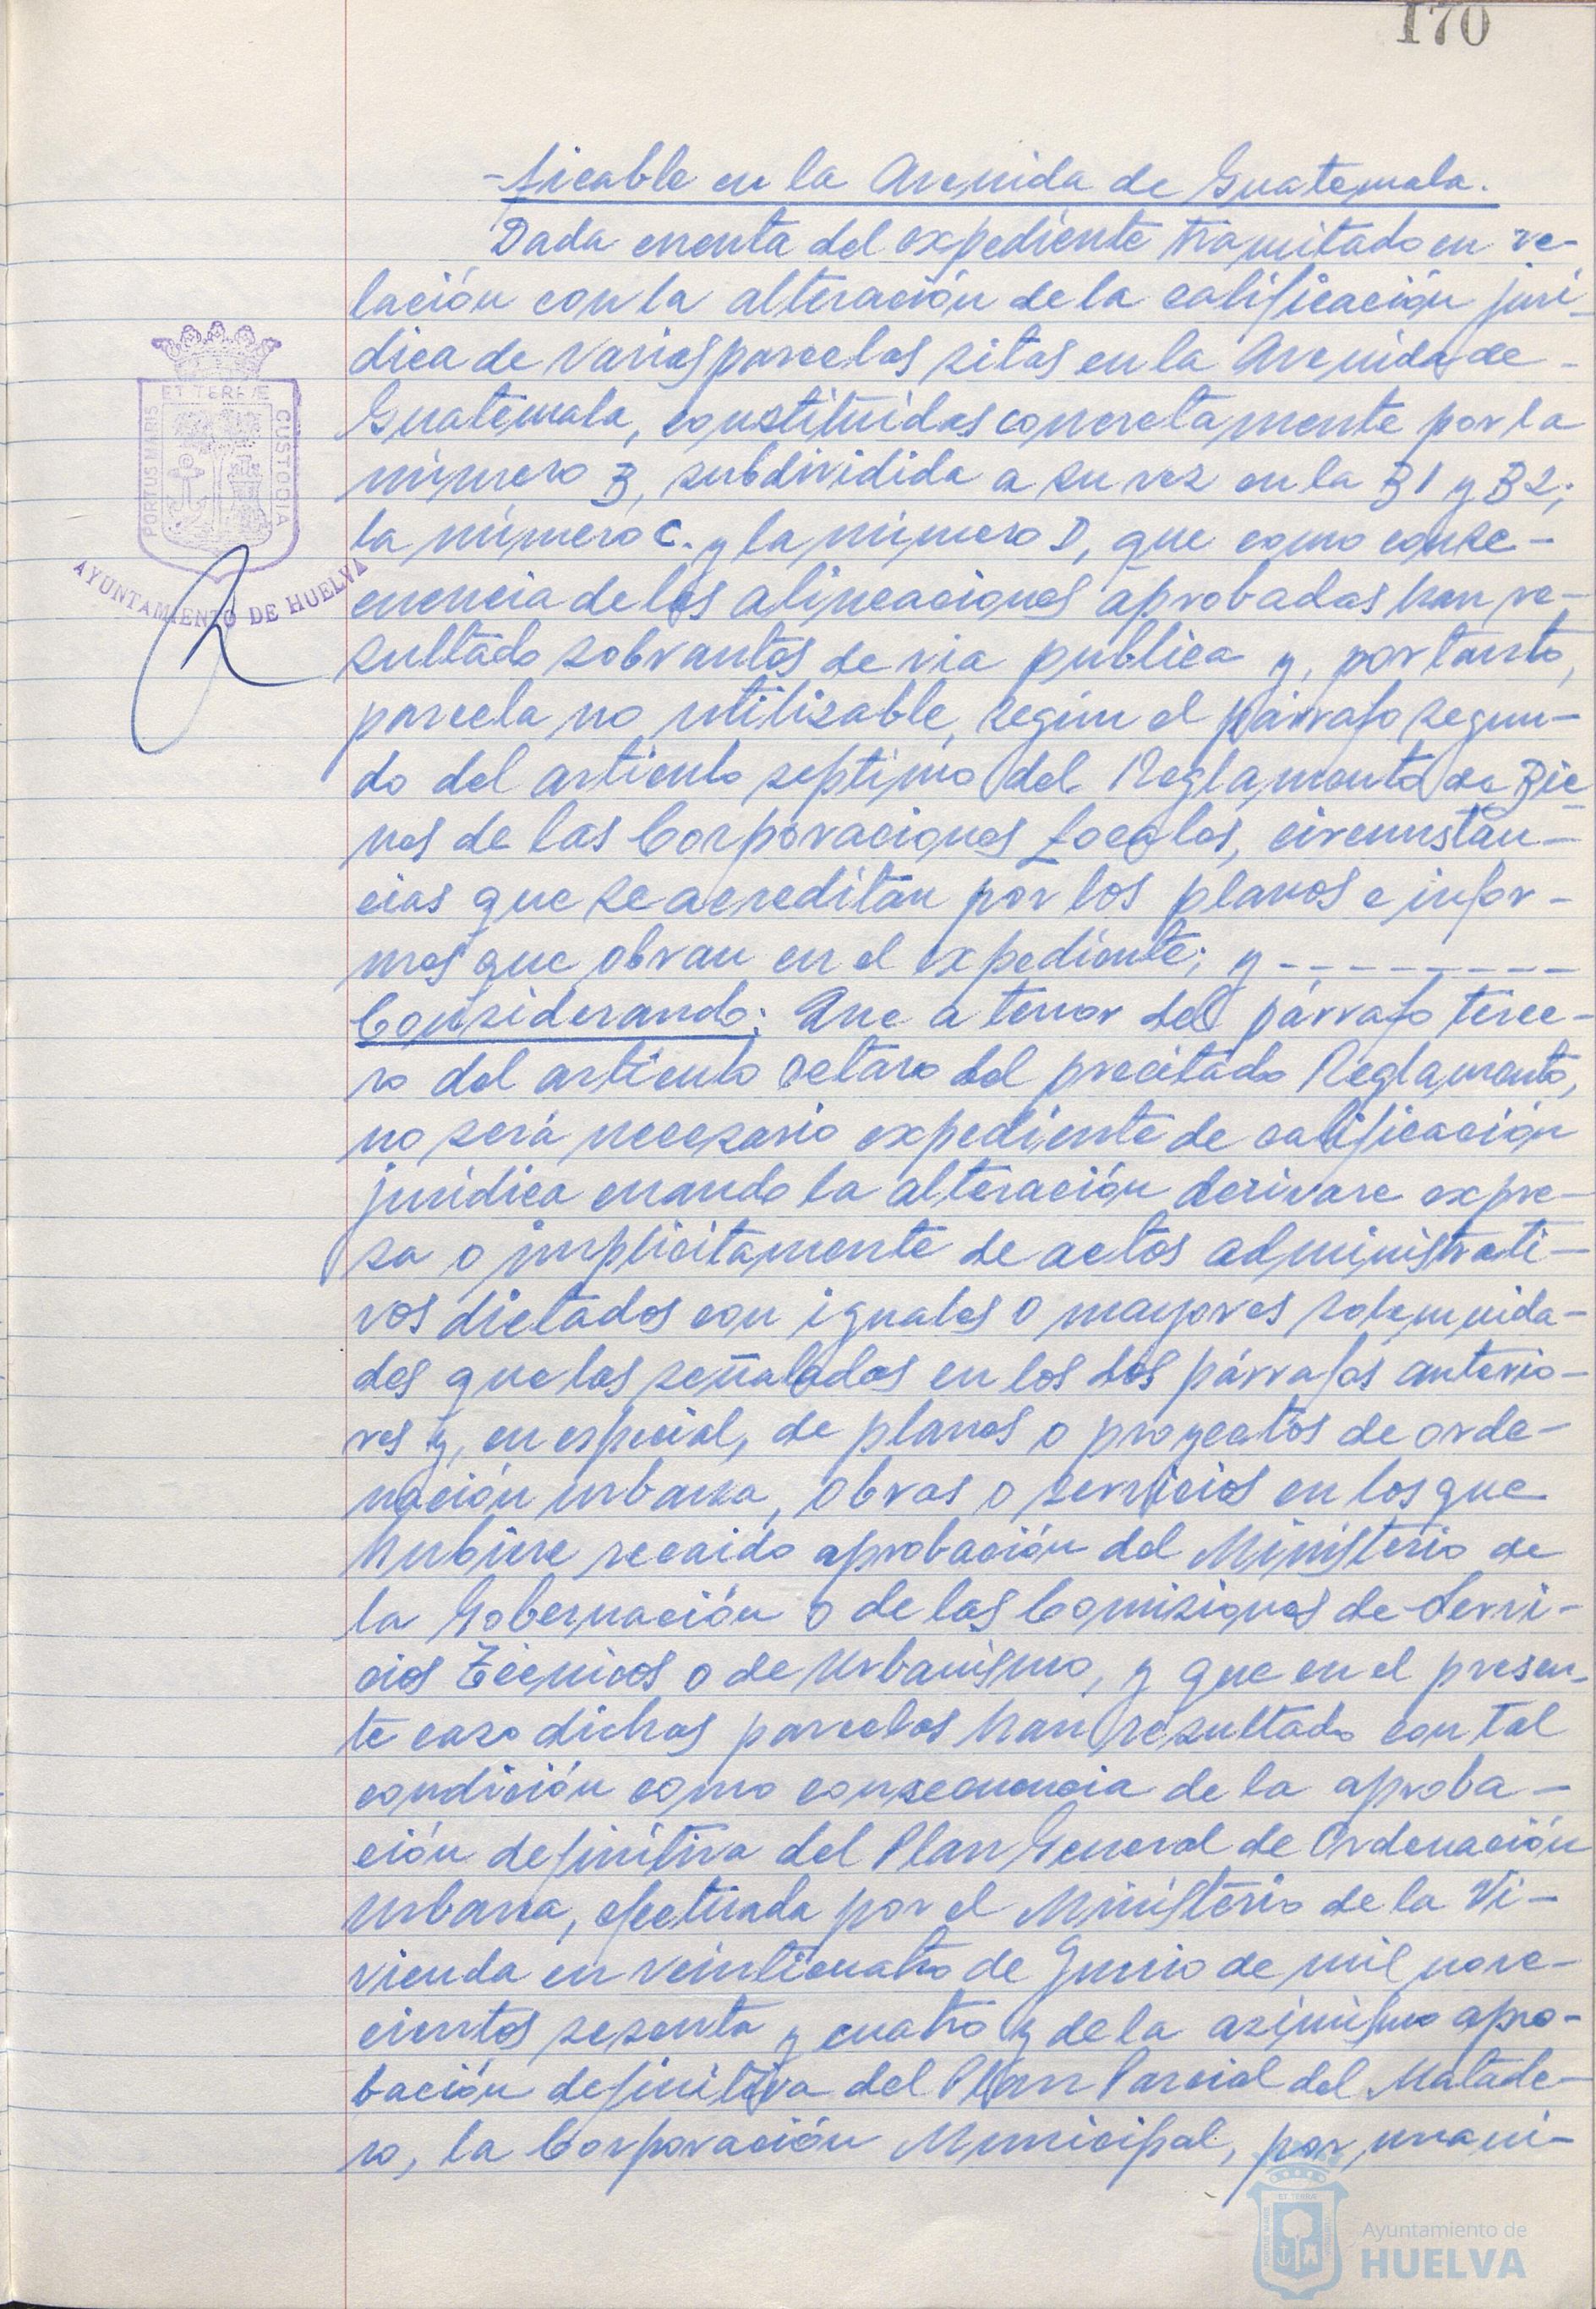 170
-ficable en la Avenida de Guatemala.
Dada cuenta del expediente tramitado en re-
lación con la alteración de la calificación jurí-
dica de varias parcelas sitas en la Avenida de -
Guatemala, constituidas concretamente por la
número B, subdividida a su vez en la B1 y B2;
la número C. y la número D, que como conse-
cuencia de las alineaciones aprobadas han re-
sultado sobrantes de via publica y, por tanto,
parcela no utilizable, según el párrafo segun-
do del articulo septimo del Reglamento de Bie-
nes de las Corporaciones Locales, circunstan-
cias que se acreditan por los planos e infor-
mes que obran en el expediente; y ---------
Considerando: Que a tenor del párrafo terce-
ro del articulo octavo del precitado Reglamento,
no será necesario expediente de calificación
jurídica cuando la alteración derivare expre-
sa o implicitamente de actos administrati-
vos dictados con iguales o mayores solemnida-
des que las señaladas en los dos párrafos anterio-
res y, en especial, de planes o proyectos de orde-
nación urbana, obras o servicios en los que
hubiere recaido aprobación del Ministerio de
la Gobernación o de las Comisiones de Servi-
cios Técnicos o de Urbanismo, y que en el presen-
te caso dichas parcelas han resultado con tal
condición como consecuencia de la aproba-
ción definitiva del Plan General de Ordenación
Urbana, efectuada por el Ministerio de la Vi-
vienda en veinticuatro de Junio de mil nove-
cientos sesenta y cuatro y de la asimismo apro-
bación definitiva del Plan Parcial del Matade-
ro, la Corporación Municipal, por unani-
PORTUS MARIS
ET TERRÆ
CUSTODIA
AYUNTAMIENTO DE HUELVA
Ayuntamiento de
HUELVA